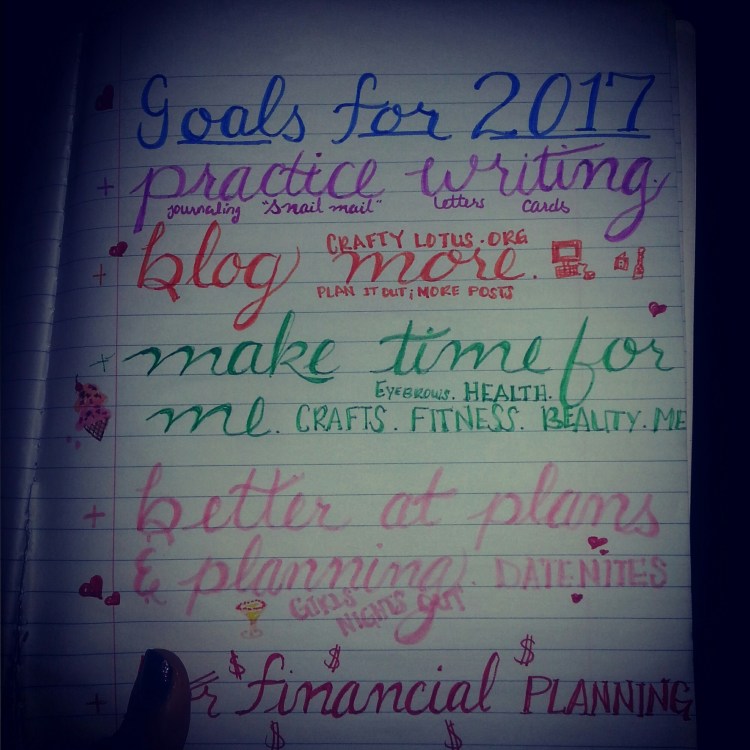 Goals for 2017
+ practice writing.
journaling "Snail mail" letters cards
CRAFTY LOTUS.ORG
+ blog more.
PLAN IT OUT; MORE POSTS
+ make time for
EYEBROWS. HEALTH.
me. CRAFTS. FITNESS. BEALITY. ME
+ better at plans
& planning. DATE NITES
GIRLS NIGHTS OUT
$ $ $
+ financial PLANNING
$ $